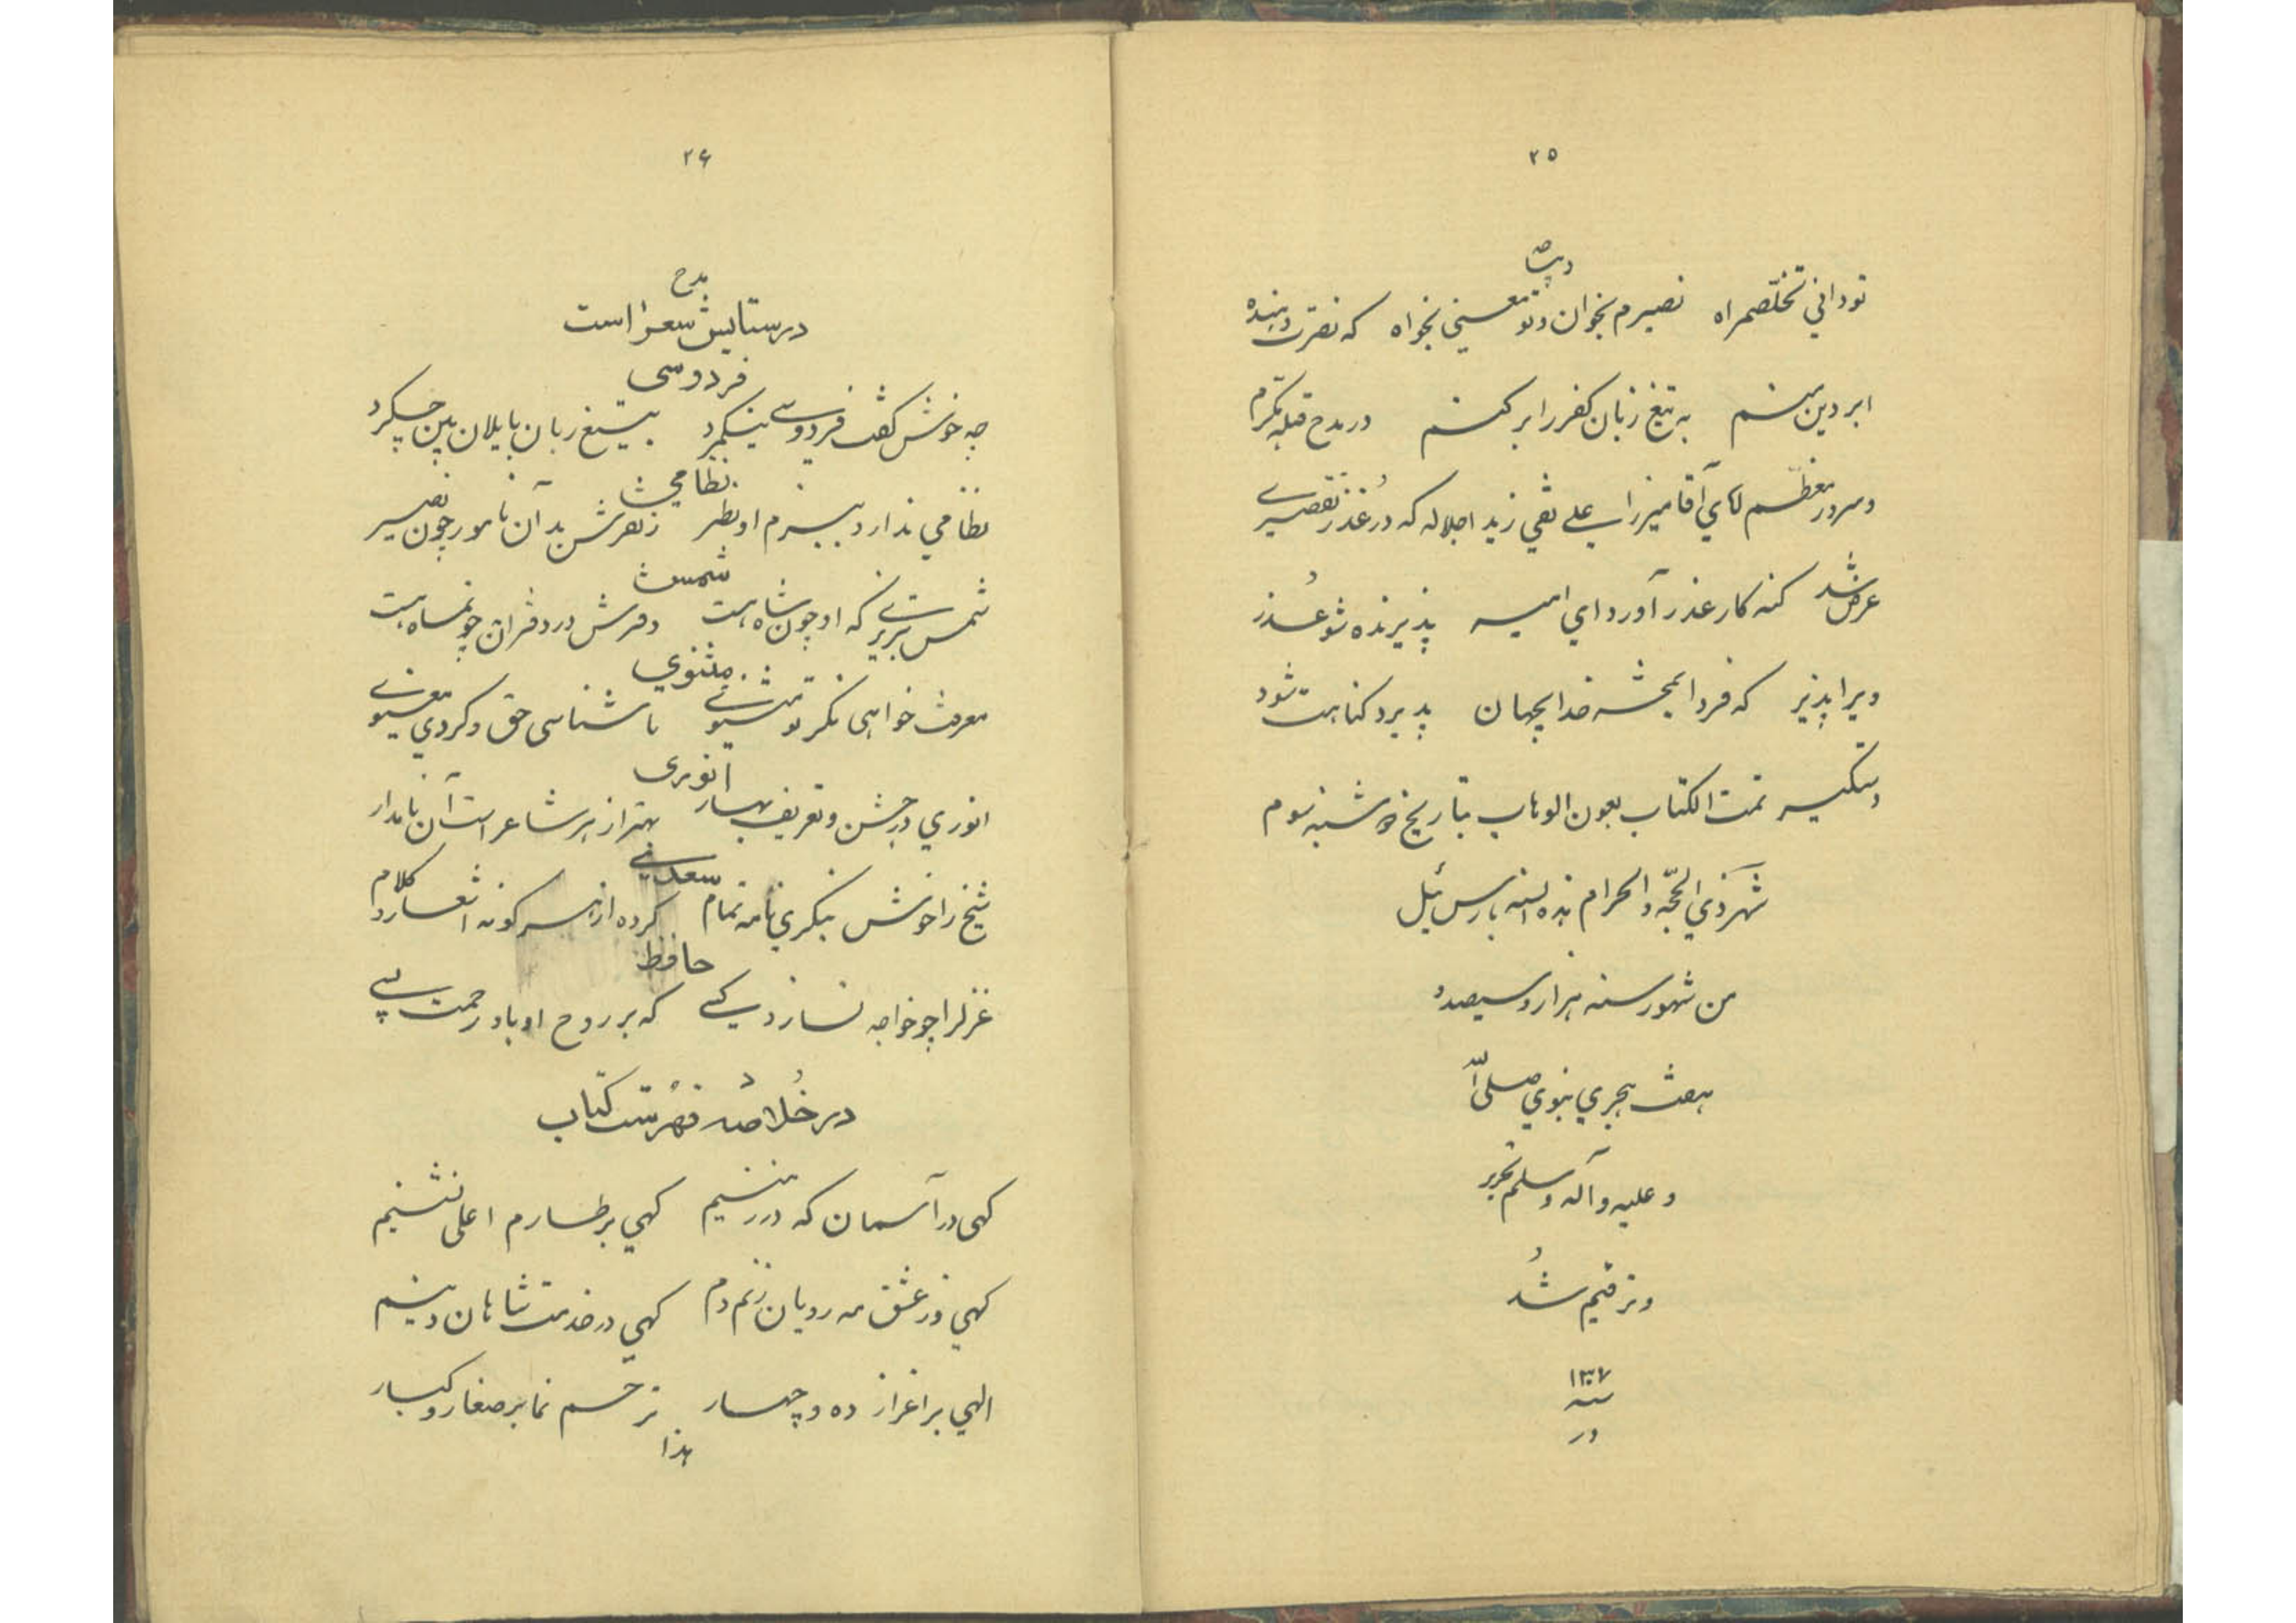 ۲۵
تو دانی تخلّصمراه نصیرم بخوان و تو معینی بخواه که نصرت دهنده
ابر دین منم به تیغ زبان کفر را بر کنم در مدح قبله مکرّم
و سرور معظّم لله‌کای آقا میرزا علی نقی زید اجلاله که در عُذر تقصیری
عرض شد کنه کار عذر آورد ای امیر پذیرنده شو عُذر
ویرا پذیر که فردا بمحشر خدایجهان پذیرد کناهت شود
دستکیر تمت الکتاب بعون الوهاب بتاریخ شنبه سوم
شهر ذی الحجّه الحرام هذه السنه بارس ئیل
من شهور سنه هزار و سیصد و
هفت هجری نبوی صلی الله
و علیه و آله و سلم تحریر
و ترقیم شُد
۱۳۰۷
سنه
در
۲۶
مدح
در ستایش شعرا است
فردوسی
چه خوش گفت فردوسی نیکمرد بتیغ زبان با یلان بین چکرد
نظامی
نظامی ندارد ببزم او نظر زنصرش بد آن نامور چون نصیر
شمس
شمس تبریزی که او چون شاه هست دفترش در دفتران چونماه هست
مثنوی
معرفت خواهی نکر تو مثنوی تا شناسی حق و کردی معنوی
انوری
انوری در جشن و تعریف بهار بهتر از هر شاعر است آن نامدار
سعدی
شیخ را خوش بنکری نامه تمام کرده از هر کونه اشعار و کلام
حافظ
غزلرا چو خواجه نسازد کسی که بر روح او باد رحمت بسی
در خُلاصه فهرست کتاب
کهی در آسمان که در زمینیم کهی بر طارم اعلی نشینیم
کهی در عشق مه رویان زنم دم کهی در خدمت شاهان دینیم
الهی براعزاز ده و چهار ترحم نما بر صغار و کبار
هذا